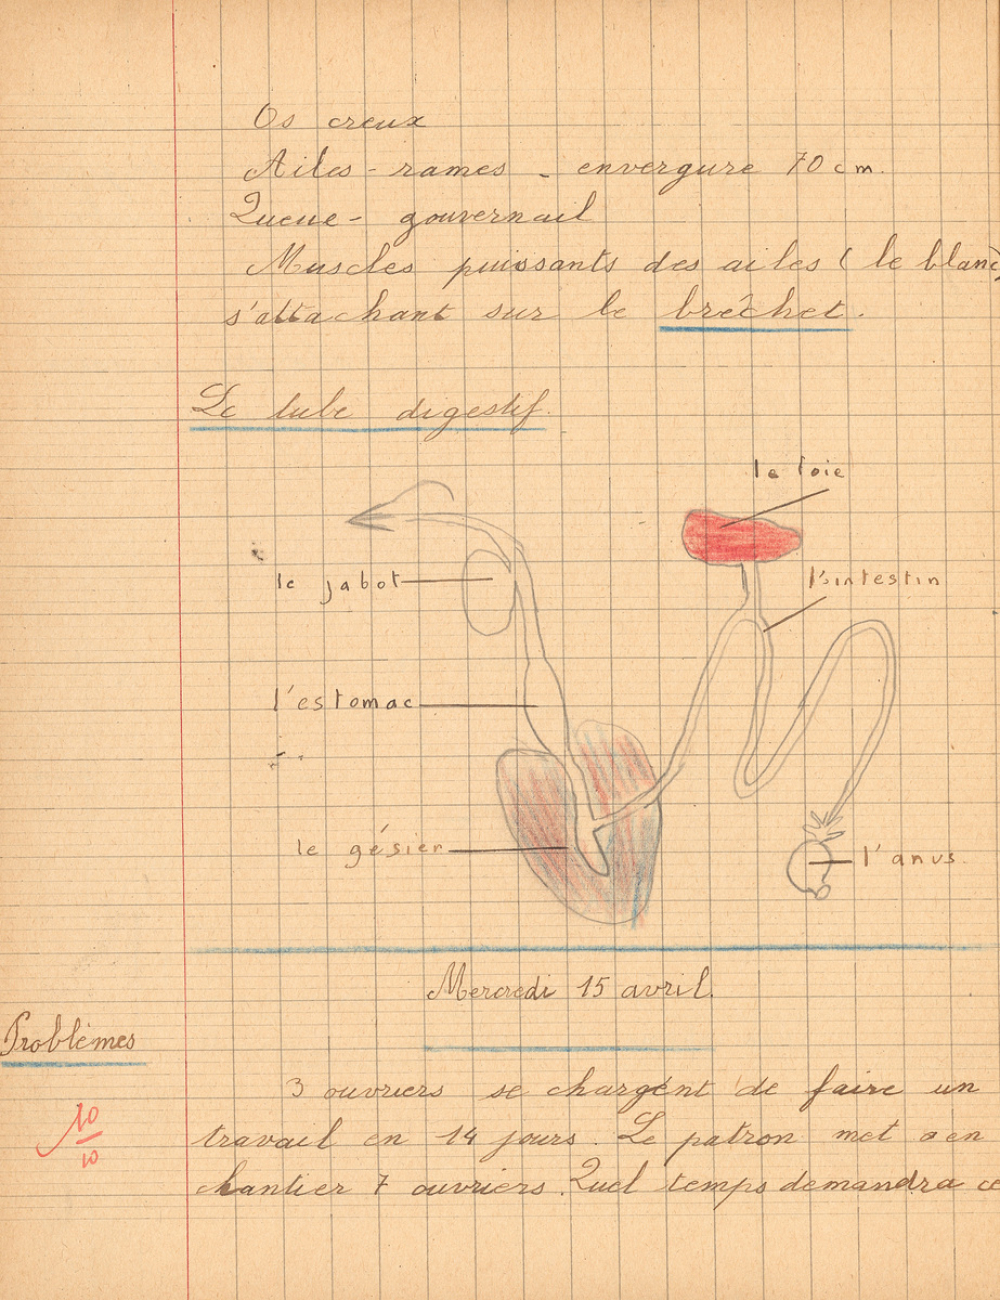 Os creux
Ailes - rames - envergure 70 cm.
Queue - gouvernail
Muscles puissants des ailes ( le blanc)
s'attachant sur le brêchet.
Le tube digestif.
le foie
le jabot
l'intestin
l'estomac
le gésier
l'anus.
Mercredi 15 avril.
Problèmes
3 ouvriers se chargent de faire un
10
10
travail en 14 jours. Le patron met en
chantier 7 ouvriers. Quel temps demandra ce